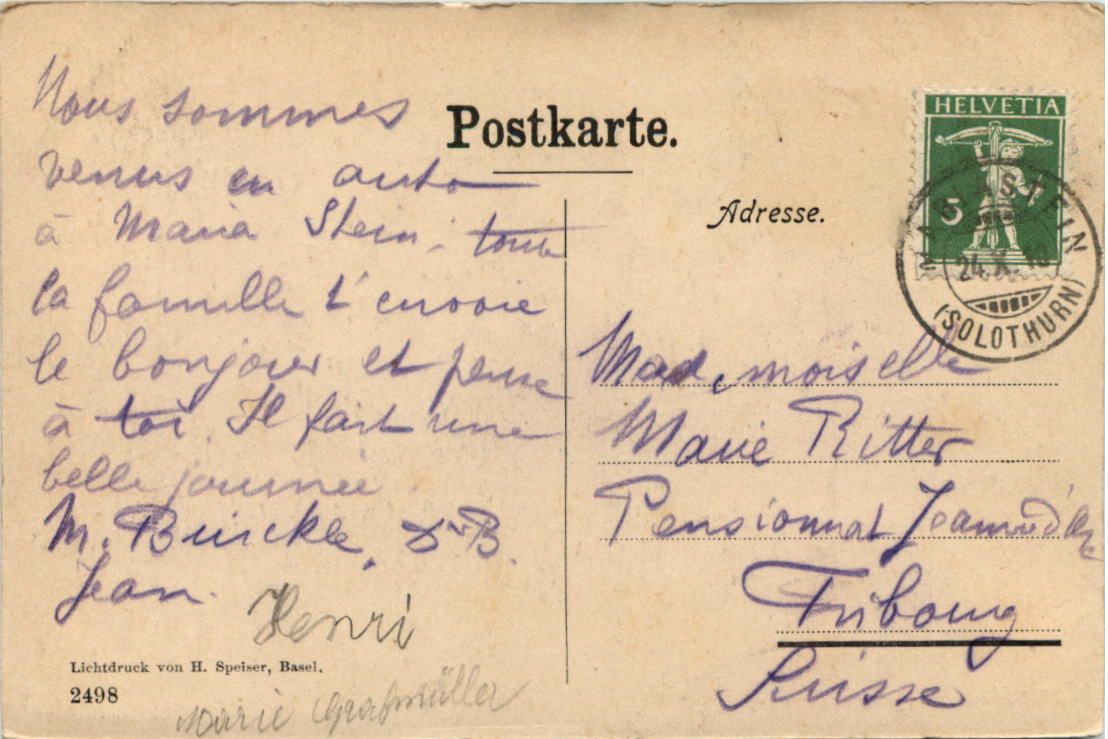 Nous sommes
venus en auto
à Maria Stein. toute
la famille t'envoie
le bonjour et pense
à toi. Il fait une
belle journée.
M. Buirckle, Dr B.
Jean.
Henri
Marie Graßmüller
Lichtdruck von H. Speiser, Basel.
2498
Postkarte.
Adresse.
HELVETIA
5
MARIASTEIN
24.X.
(SOLOTHURN)
Mademoiselle
Marie Ritter
Pensionnat Jeanne d'Arc
Fribourg
Suisse